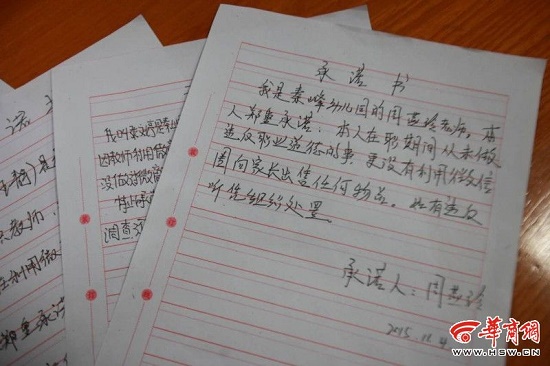 承诺书
我是秦峰幼儿园的周燕玲老师。本
人郑重承诺：本人在职期间从未做
违反职业道德的事，更没有利用微信
圈向家长出售任何物品。如有违反
听凭组织处置
承诺人：周燕玲
2015.
我叫
因教师利用微
没做过微商
特此承
调查
诺
教师
利用微
郑重承诺
華商網
WWW.HSW.CN